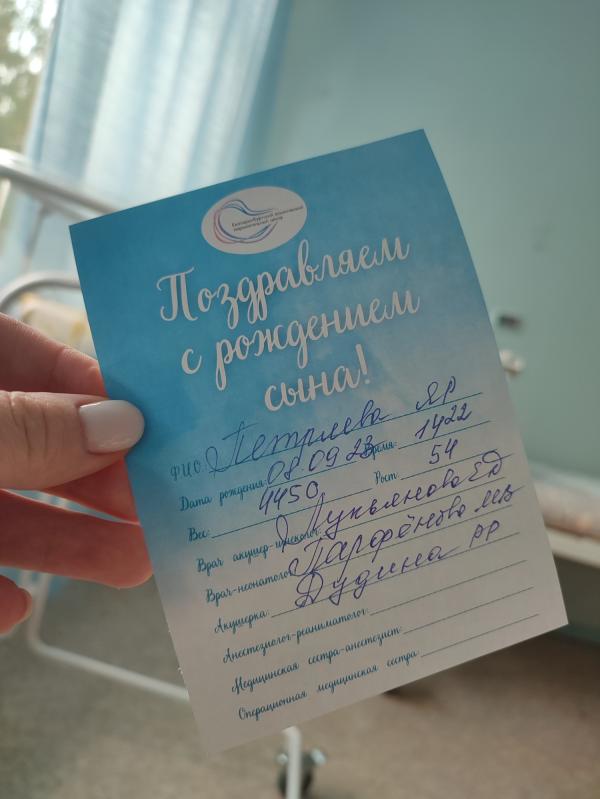 Екатеринбургский клинический
перинатальный центр
Поздравляем
с рождением
сына!
ФИО: Петрлева ЯР
Дата рождения: 08.09.23 Время: 1422
Вес: 4450 Рост: 54
Врач акушер-гинеколог: Лукьянова ЕД
Врач-неонатолог: Парфёнова МВ
Акушерка: Дудина РР
Анестезиолог-реаниматолог:
Медицинская сестра-анестезист:
Операционная медицинская сестра: